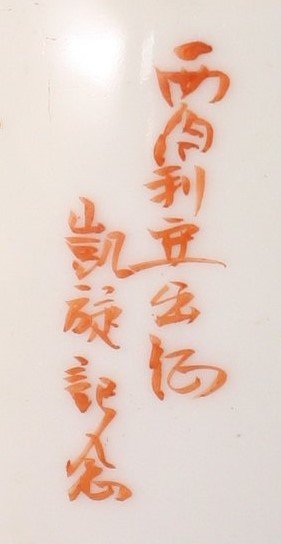 西伯利亜出征
凱旋記念